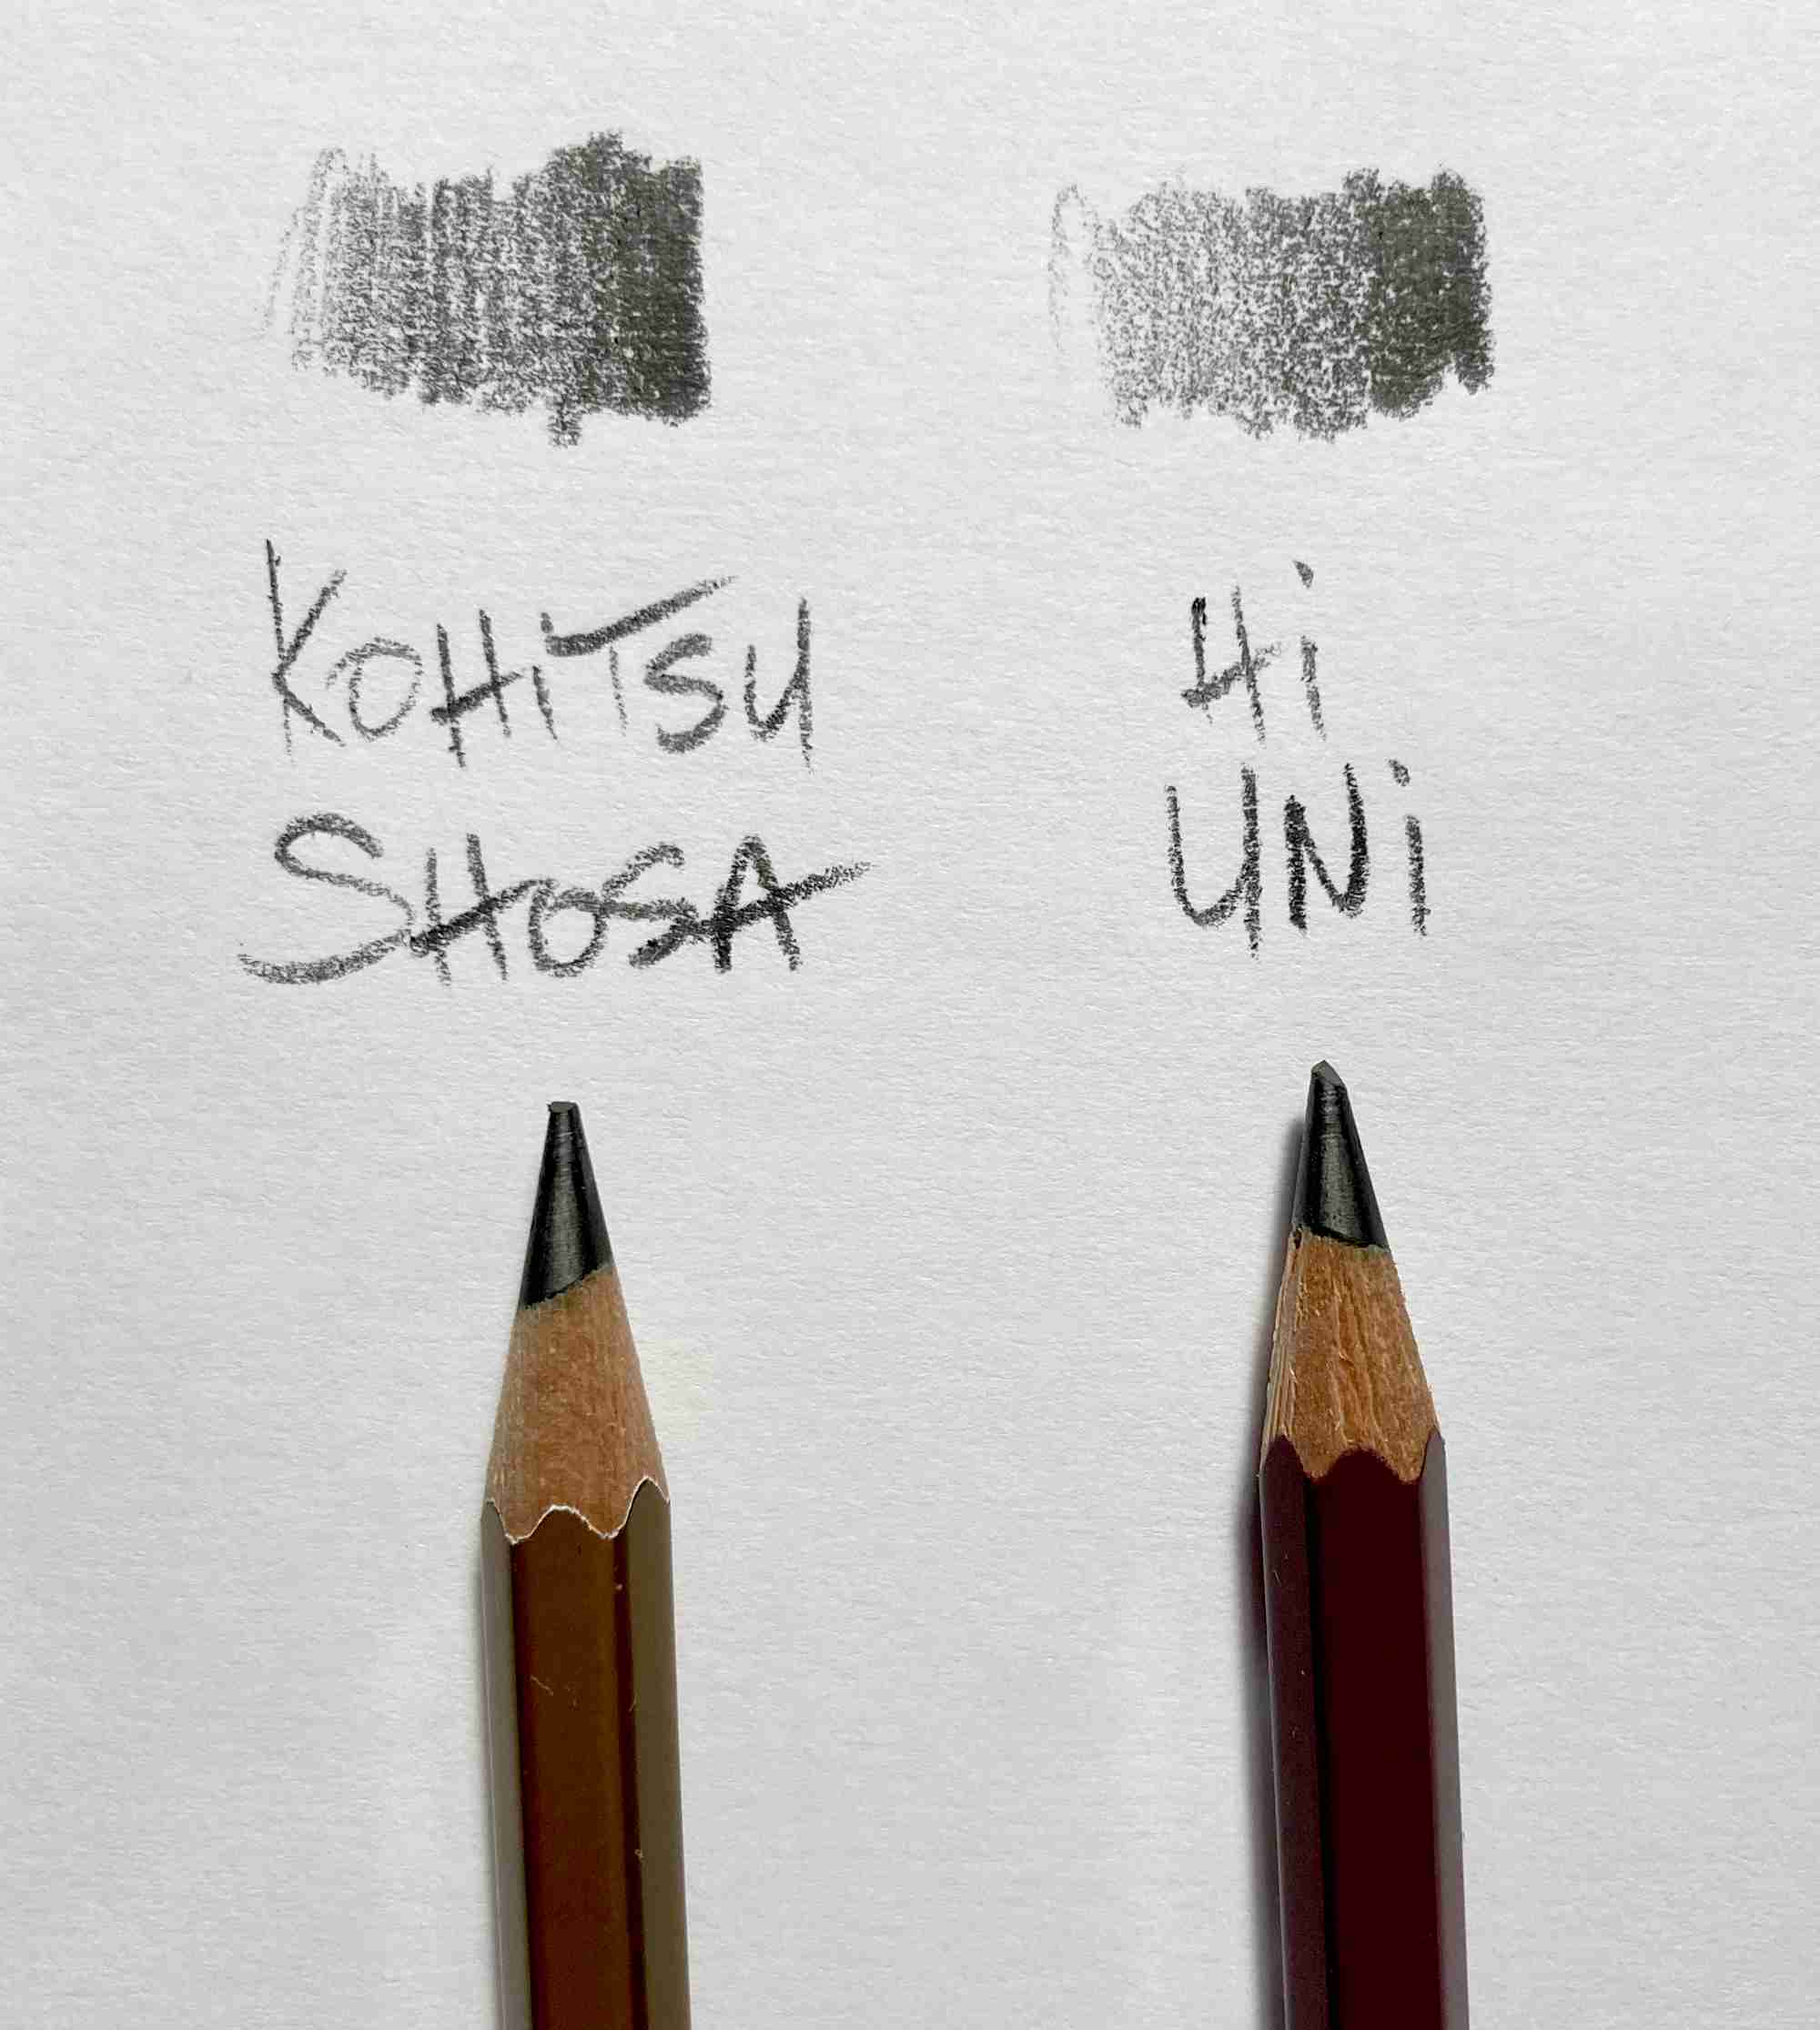 KOHiTSU
SHOSA
Hi
UNi